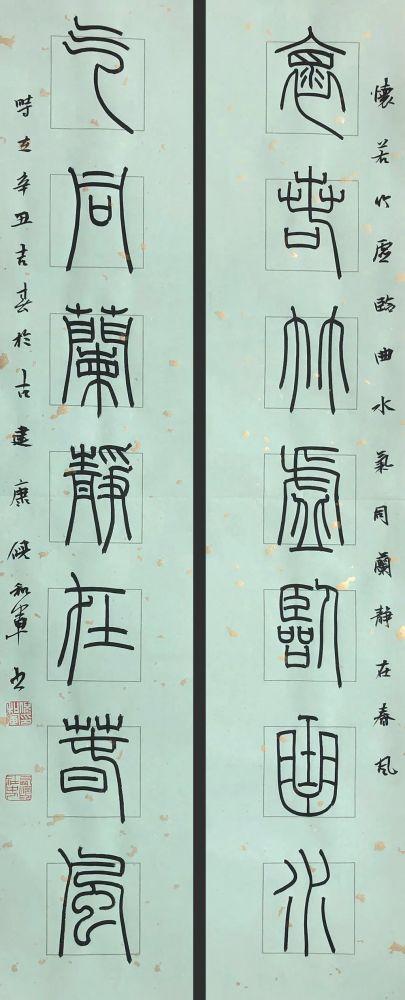 懷若竹虛臨曲水氣同蘭靜在春風
懷若竹虛臨曲水
氣同蘭靜在春風
時在辛丑吉春於古建康 和軍书